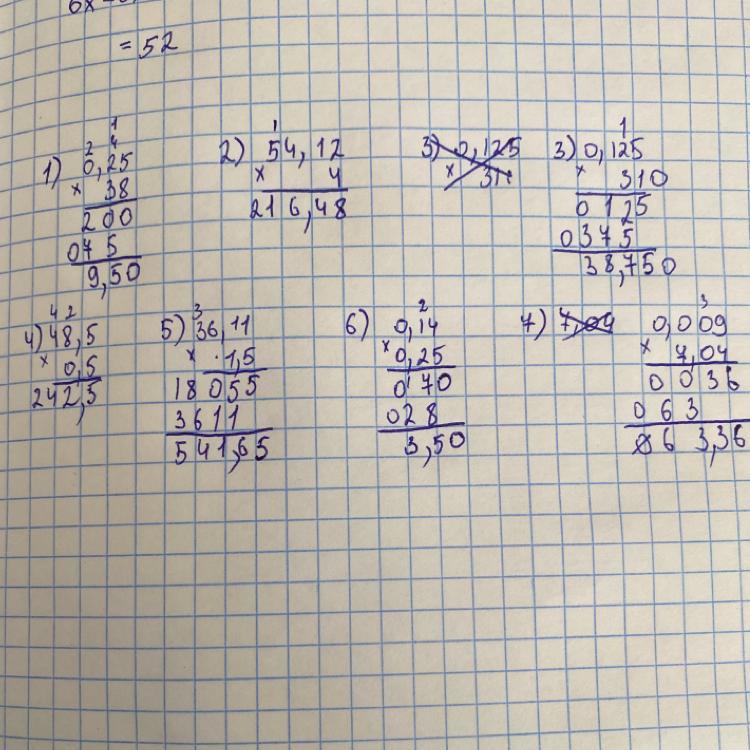 = 52
1
2 4
1) 0,25
× 38
200
075
9,50
1
2) 54,12
× 4
216,48
3) 0,125
×
1
3) 0,125
× 310
0125
2
0375
38,750
4 2
4) 48,5
× 0,5
242,5
3
5) 36,11
× 1,5
18055
3611
541,65
2
6) 0,14
× 0,25
070
028
3,50
7) 7,04
3
0,009
× 7,04
0036
063
063,36